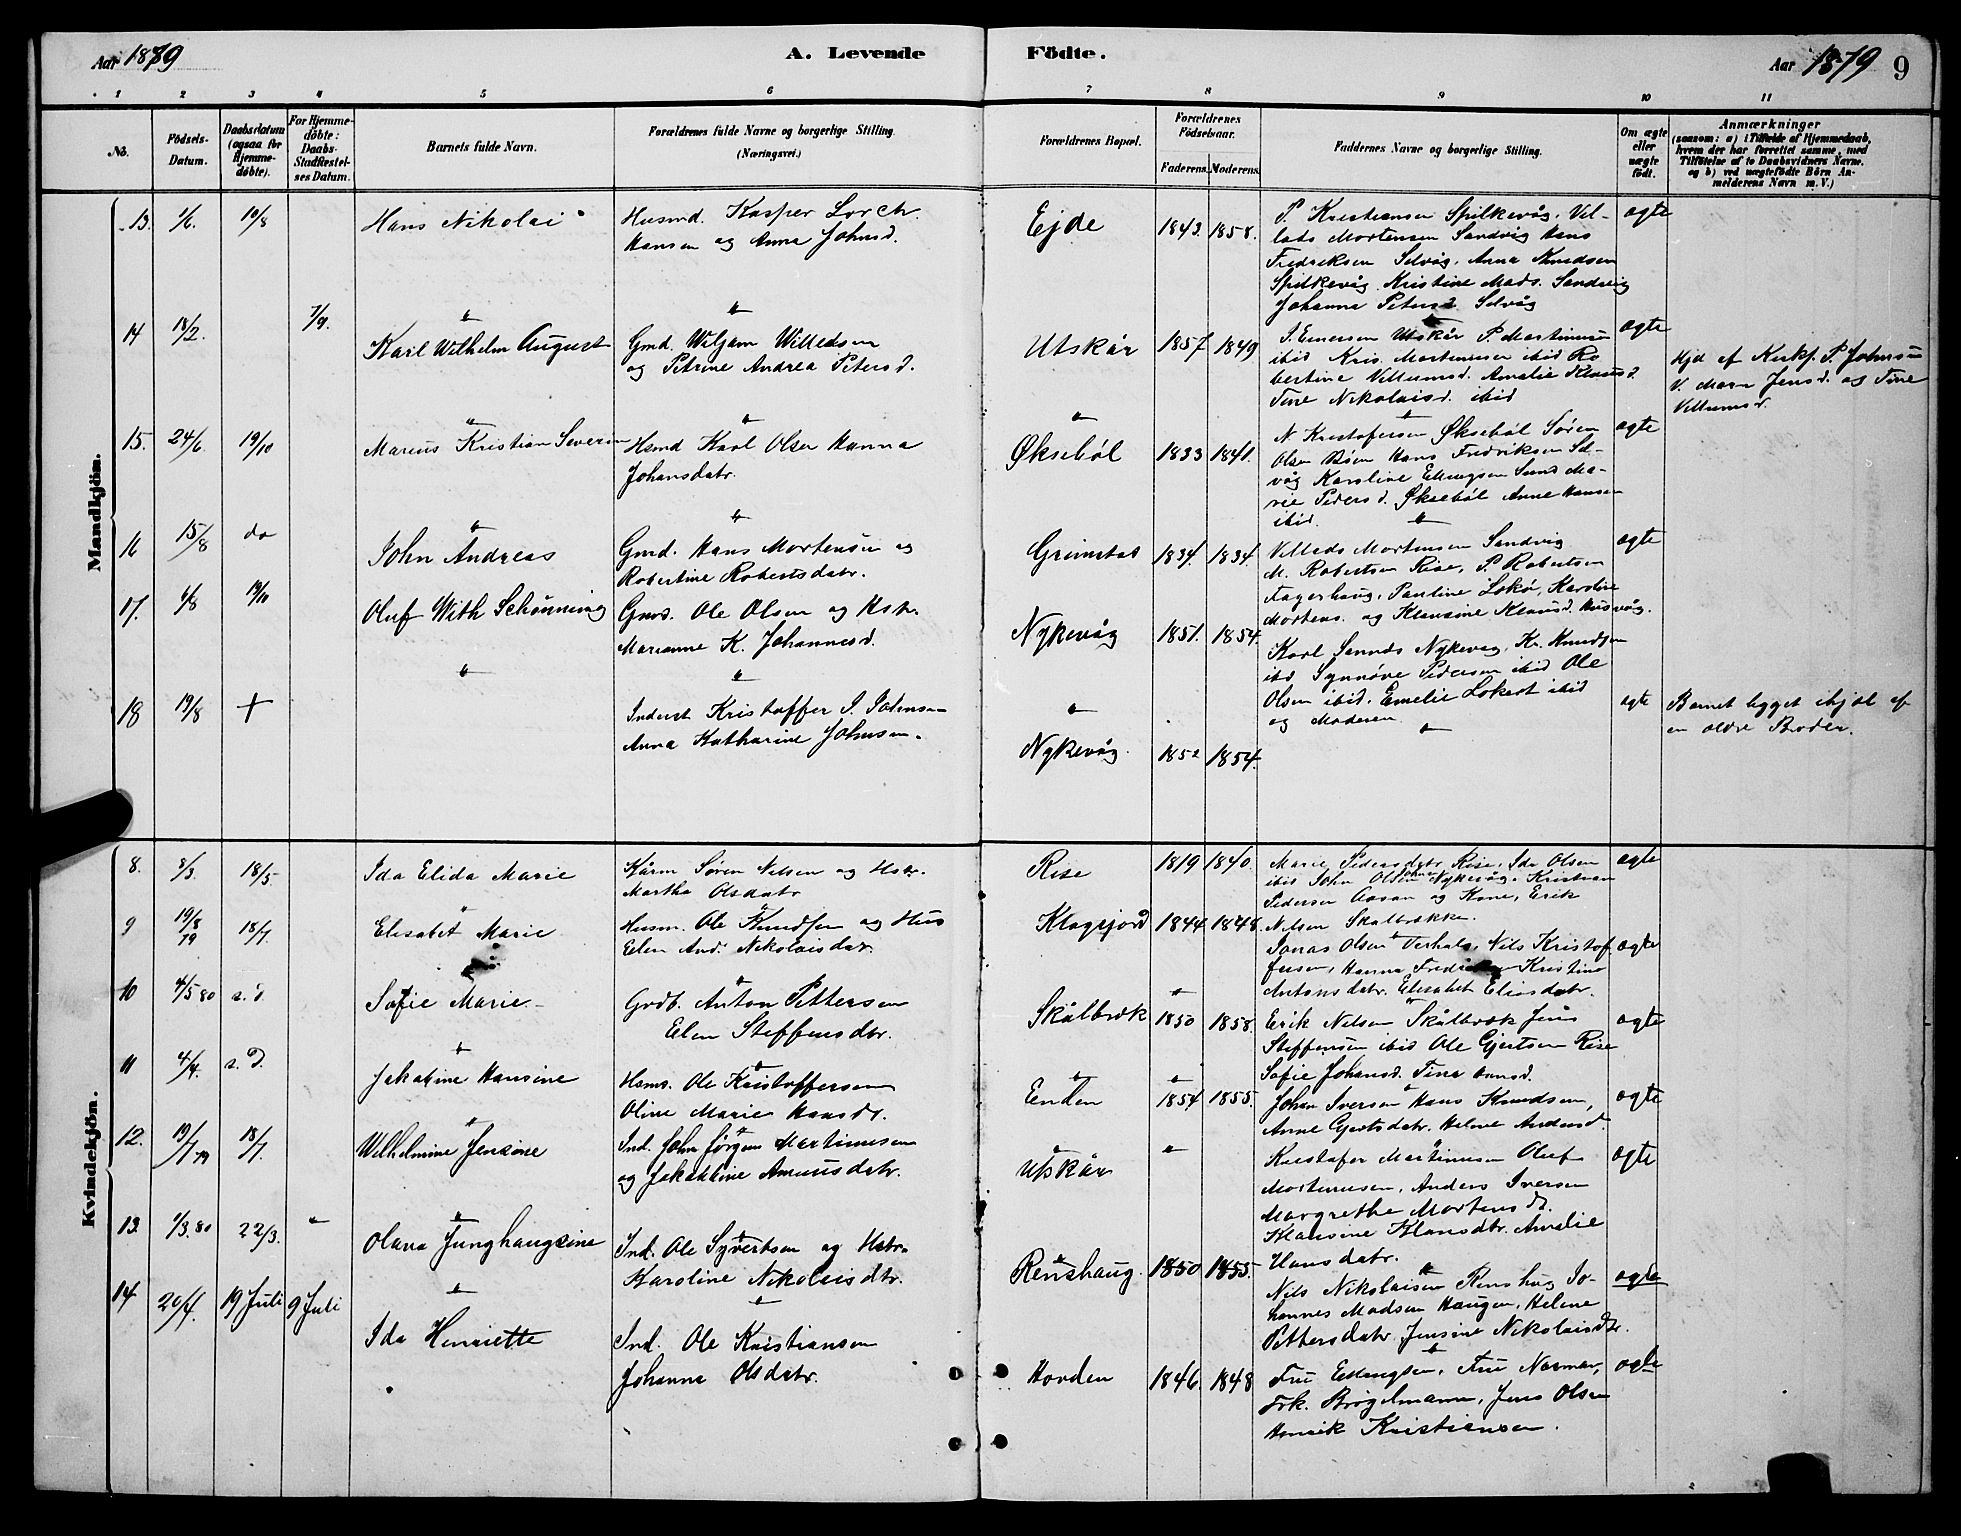 Aar 1879
A. Levende
Födte.
Aar 1879
9
1 2 3 4 5 6 7 8 9 10 11
No.
Födsels-Datum.
Daabsdatum (ogsaa for Hjemmedöbte).
For Hjemmedöbte: Daabs-Stadfæstelses Datum.
Barnets fulde Navn.
Forældrenes fulde Navne og borgerlige Stilling.
(Næringsvei.)
Forældrenes Bopæl.
Forældrenes Födselsaar.
Faderens. Moderens.
Faddernes Navne og borgerlige Stilling.
Om ægte eller uægte födt.
Anmærkninger
(saasom: a) i Tilfælde af Hjemmedaab, hvem der har forrettet samme, med Tilföielse af to Daabsvidners Navne. og b) ved uægtefödte Börn Anmelderens Navn m. V.)
Mandkjön.
13. 1/6. 10/8 Hans Nikolai Husmd. Kasper Lorch
Hansen og Anna Johnsd.
Ejde 1843. 1858.
P. Kristiansen Spilkevåg, Vil-
lads Mortensen Sandvig Hans
Fredriksen Selvåg, Anna Knudsen
Spilkevåg Kristine Mads. Sandvig
Johanna Petersd Selvåg
ægte
14 18/2. 7/9. Karl Wilhelm August Gmd. Wiljam Willedsen
og Petrine Andrea Petersd.
Utskår 1857 1849
J. Emersen Utskår P. Martinusen
ibid Kris. Mortensen ibid Ro
bertine Villumsd. Amalie Klausd.
Tine Nikolaisd. ibid
ægte
Hjd af Kirkf. P. Johnsen
V. Maren Jensd. og Tine
Villumsd.
15. 24/6 19/10 Marius Kristian Severin Hsmd Karl Olsen Hanna
Johansdatr.
Øksebøl 1833 1841.
N Kristofersen Øksebøl Søren
Olsen Bøen Hans Fredriksen Sel-
våg Karoline Ellingsen Sund Ma-
rie Pedersd. Øksebøl Anne Hansen
ibid.
ægte
16 15/8 do John Andreas Gmd. Hans Mortensen og
Robertine Robertsdatr.
Grimstad 1834. 1834.
Villads Mortensen Sandvig
M. Robertsen Rise, P. Robertsen
Fagerhaug, Pauline Lokø, Karoline
Mortens. og Klausine Klausd. Husvåg.
ægte
17. 4/8 19/10 Oluf With Schønning Gmd. Ole Olsen og Hstr.
Marianne K. Johannesd.
Nykevåg 1851. 1854.
Karl Sannds Nykevåg, Kr. Knudsen
ibd Synnøve Pedersen ibid Ole
Olsen ibid. Emelie Lokert ibid
og Moderen
18 19/8 + Inderst Kristoffer J. Johnsen
Anna Katharine Johnsen.
Nykevåg. 1852 1854.
ægte
Barnet ligget ihjel af
en ældre Broder.
Kvindekjön.
8. 8/3. 18/5. Ida Elida Marie Kårm Søren Nilsen og Hstr.
Martha Olsdatr
Rise 1819 1840.
Marie Pedersdatr Rise, Ida Olsen
ibid John Olsen Nykevåg. Kristian
Pedersen Aasan og Kone, Erik
Nilsen Skålbrække.
ægte
9 19/8 79 18/7. Elisabet Marie Husm. Ole Knudsen og Hus
Elen And. Nikolaisdatr.
Klogsjord 1844 1848.
Jonas Olsen Verhals, Nils Kristof
fersen, Hanna Fredriksen Kristine
Antonsdatr. Elisabet Eliasdatr.
ægte
10 4/5 80 s. d. Sofie Marie Grdb. Anton Pettersen
Elen Steffensdtr.
Skålbræk 1850 1858.
Erik Nilsen Skålbræk Jens
Steffensen ibid Ole Gjertsen Rise
Sofie Johansd. Tina
ægte
11 4/4. s. d. Jakobine Hansine Hsms. Ole Kristoffersen
Oline Marie Hansdr.
Enden 1854 1855.
Johan Iversen Hans Knudsen,
Anne Gertsdatr. Helene Andersd
ægte
12. 19/7 79 18/7. Wilhelmine Jensine Ind. John Jørgen Martinusen
og Jakobine Amundsdatr.
Utskår
Kristofer Martinusen Oluf
Mortensen, Anders Iversen
Margrethe Mortensd.
Klausine Klausdtr. Amalie
Hansdatr.
ægte
13. 1/3. 80 22/3. Olava Junghaugsine Ind. Ole Syvertsen og Hstr.
Karoline Nikolaisdtr.
Renshaug. 1850 1855.
Nils Nikolaisen Renshug Jo-
hannes Madsen Haugen, Helene
Pettersdatr. Jensine Nikolaisdtr.
ægte
14 20/4. 19 Juli 9 Juli Ida Henriette Ind. Ole Kristiansen
Johanna Olsdatr.
Hovden 1846. 1848
Fru Ellingsen, Fru Normann,
Frk. Brøgelmann, Jens Olsen
Henrik Kristiansen.
ægte